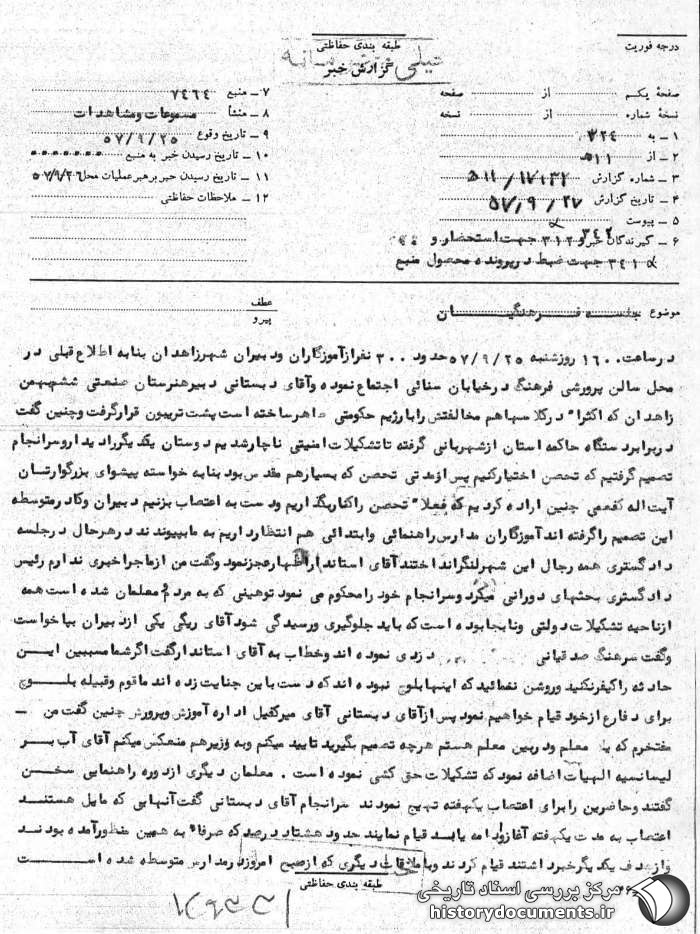 درجه فوریت
طبقه بندی حفاظتی
خیلی محرمانه
گزارش خبر
صفحهٔ یکم از صفحه
نسخهٔ شماره از نسخه
۱ ـ به ۳۲۴
۲ ـ از ۵۱۱
۳ ـ شماره گزارش
۴ ـ تاریخ گزارش ۵۷/۹/۲۷
۵ ـ پیوست
۶ ـ گیرندگان خبر ۳۱۲ جهت استحضار و
۳۴۱ جهت ضبط در پرونده محصول منبع
۷ ـ منبع ۷۴۶۴
۸ ـ منشأ مسموعات و مشاهدات
۹ ـ تاریخ وقوع ۵۷/۹/۲۵
۱۰ ـ تاریخ رسیدن خبر به منبع
۱۱ ـ تاریخ رسیدن خبر برهبر عملیات محل ۵۷/۹/۲۶
۱۲ ـ ملاحظات حفاظتی
موضوع جلسه فرهنگیان
عطف
پیرو
در ساعت ۱۶۰۰ روز شنبه ۵۷/۹/۲۵ حدود ۳۰۰ نفر از آموزگاران و دبیران شهر زاهدان بنا به اطلاع قبلی در
محل سالن پرورشی فرهنگ در خیابان سنائی اجتماع نموده و آقای دبستانی دبیر هنرستان صنعتی ششم بهمن
زاهدان که اکثراً در کلاسها هم مخالفتش را با رژیم حکومتی ظاهر ساخته است پشت تریبون قرار گرفت و چنین گفت
در برابر دستگاه حاکمه استان از شهربانی گرفته تا تشکیلات امنیتی ناچار شدیم دوستان یکدیگر را دیدار و سرانجام
تصمیم گرفتیم که تحصن اختیار کنیم پس از مدتی تحصن که بسیار هم مقدس بود بنا به خواسته پیشوای بزرگوارتان
آیت اله کفعمی چنین اراده کردیم که فعلاً تحصن را کنار بگذاریم و دست به اعتصاب بزنیم دبیران و کادر متوسطه
این تصمیم را گرفته اند آموزگاران مدارس راهنمائی و ابتدائی هم انتظار داریم به ما بپیوندند در هر حال در جلسه
دادگستری همه رجال این شهر لنگر انداختند آقای استاندار اظهار عجز نمود و گفت من از ماجرا خبری ندارم رئیس
دادگستری بحثهای دورانی میکرد و سرانجام خود را محکوم می نمود توهینی که به مردم و معلمان شده است همه
از ناحیه تشکیلات دولتی و نابجا بوده است که باید جلوگیری و رسیدگی شود آقای ریگی یکی از دبیران بپا خواست
و گفت سرهنگ صدقیانی دزدی نموده اند و خطاب به آقای استاندار گفت اگر شما مسببین این
حادثه را کیفر نکنید و روشن ننمائید که اینها بلوچ نبوده اند که دست باین جنایت زده اند ما قوم و قبیله بلوچ
برای دفاع از خود قیام خواهیم نمود پس از آقای دبستانی آقای میر کفیل اداره آموزش و پرورش چنین گفت من ـ
مفتخرم که یک معلم و دربین معلم هستم هرچه تصمیم بگیرید تایید میکنم و به وزیر هم منعکس میکنم آقای آب بر
لیسانسیه الهیات اضافه نمود که تشکیلات حق کشی نموده است . معلمان دیگری از دوره راهنمایی سخن
گفتند و حاضرین را برای اعتصاب یکهفته تهیج نمودند سرانجام آقای دبستانی گفت آنهایی که مایل هستند
اعتصاب به مدت یکهفته آغاز و ادامه یابد قیام نمایند حدود هشتاد درصد که صرفاً به همین منظور آمده بودند
و از هدف یکدیگر خبر داشتند قیام کردند و با ملاقات دیگری که از صبح امروز در مدارس متوسطه شده است
طبقه بندی حفاظتی
مرکز بررسی اسناد تاریخی
historydocuments.ir